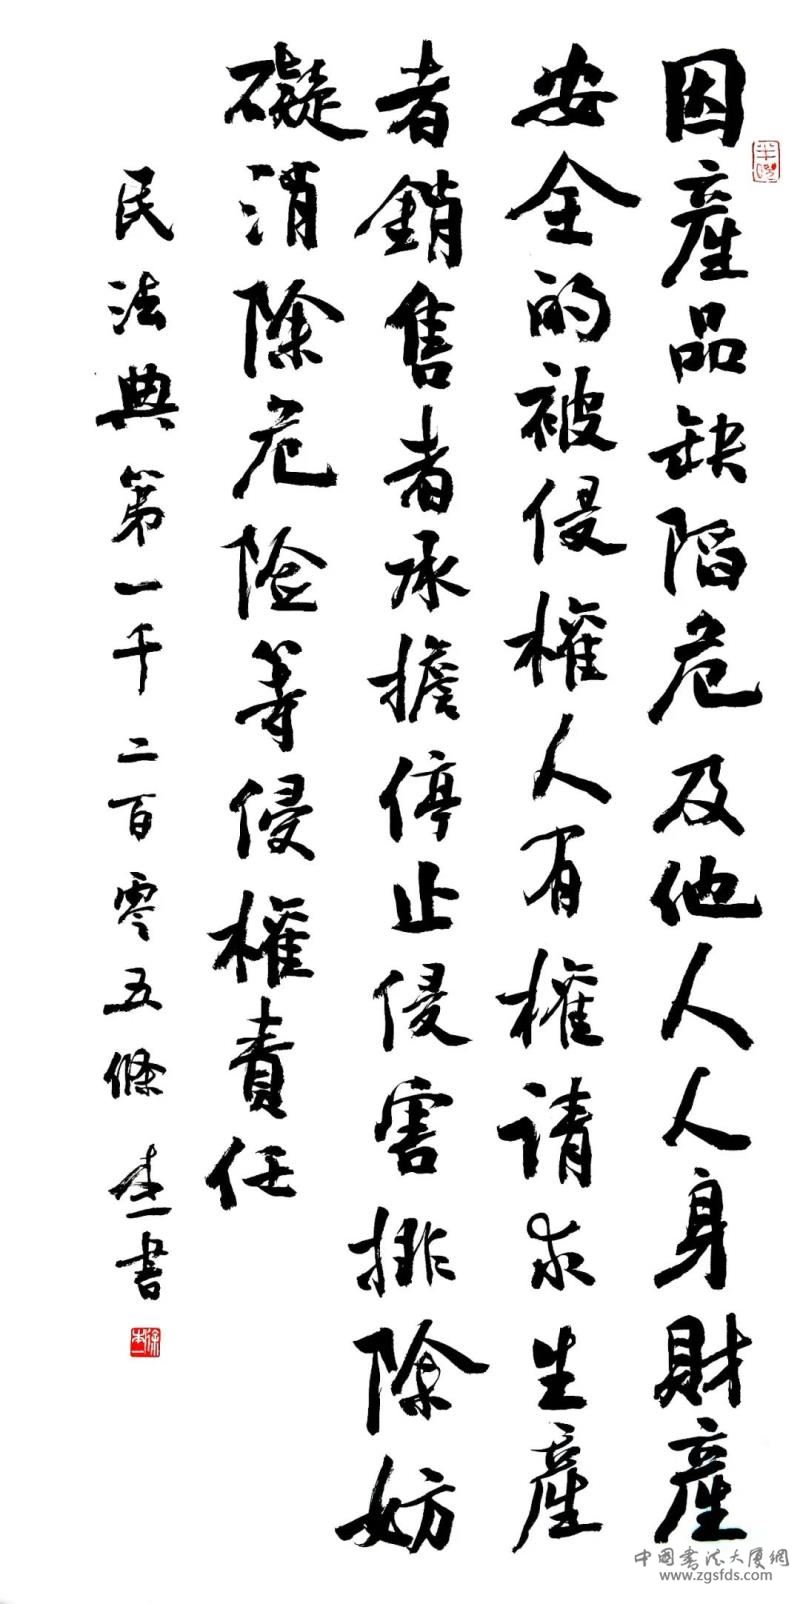 因產品缺陷危及他人人身財產
安全的被侵權人有權请求生產
者銷售者承擔停止侵害排除妨
礙消除危险等侵權責任
民法典第一千二百零五條 本一書
中国書法大厦網
www.zgsfds.com